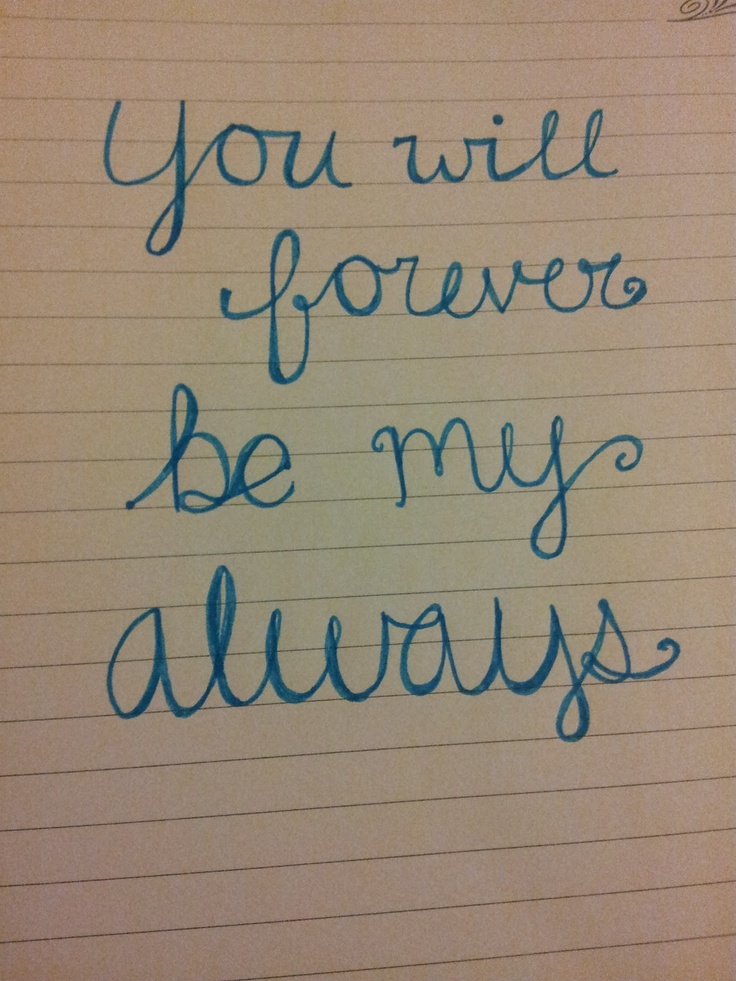 You will
forever
be my
always